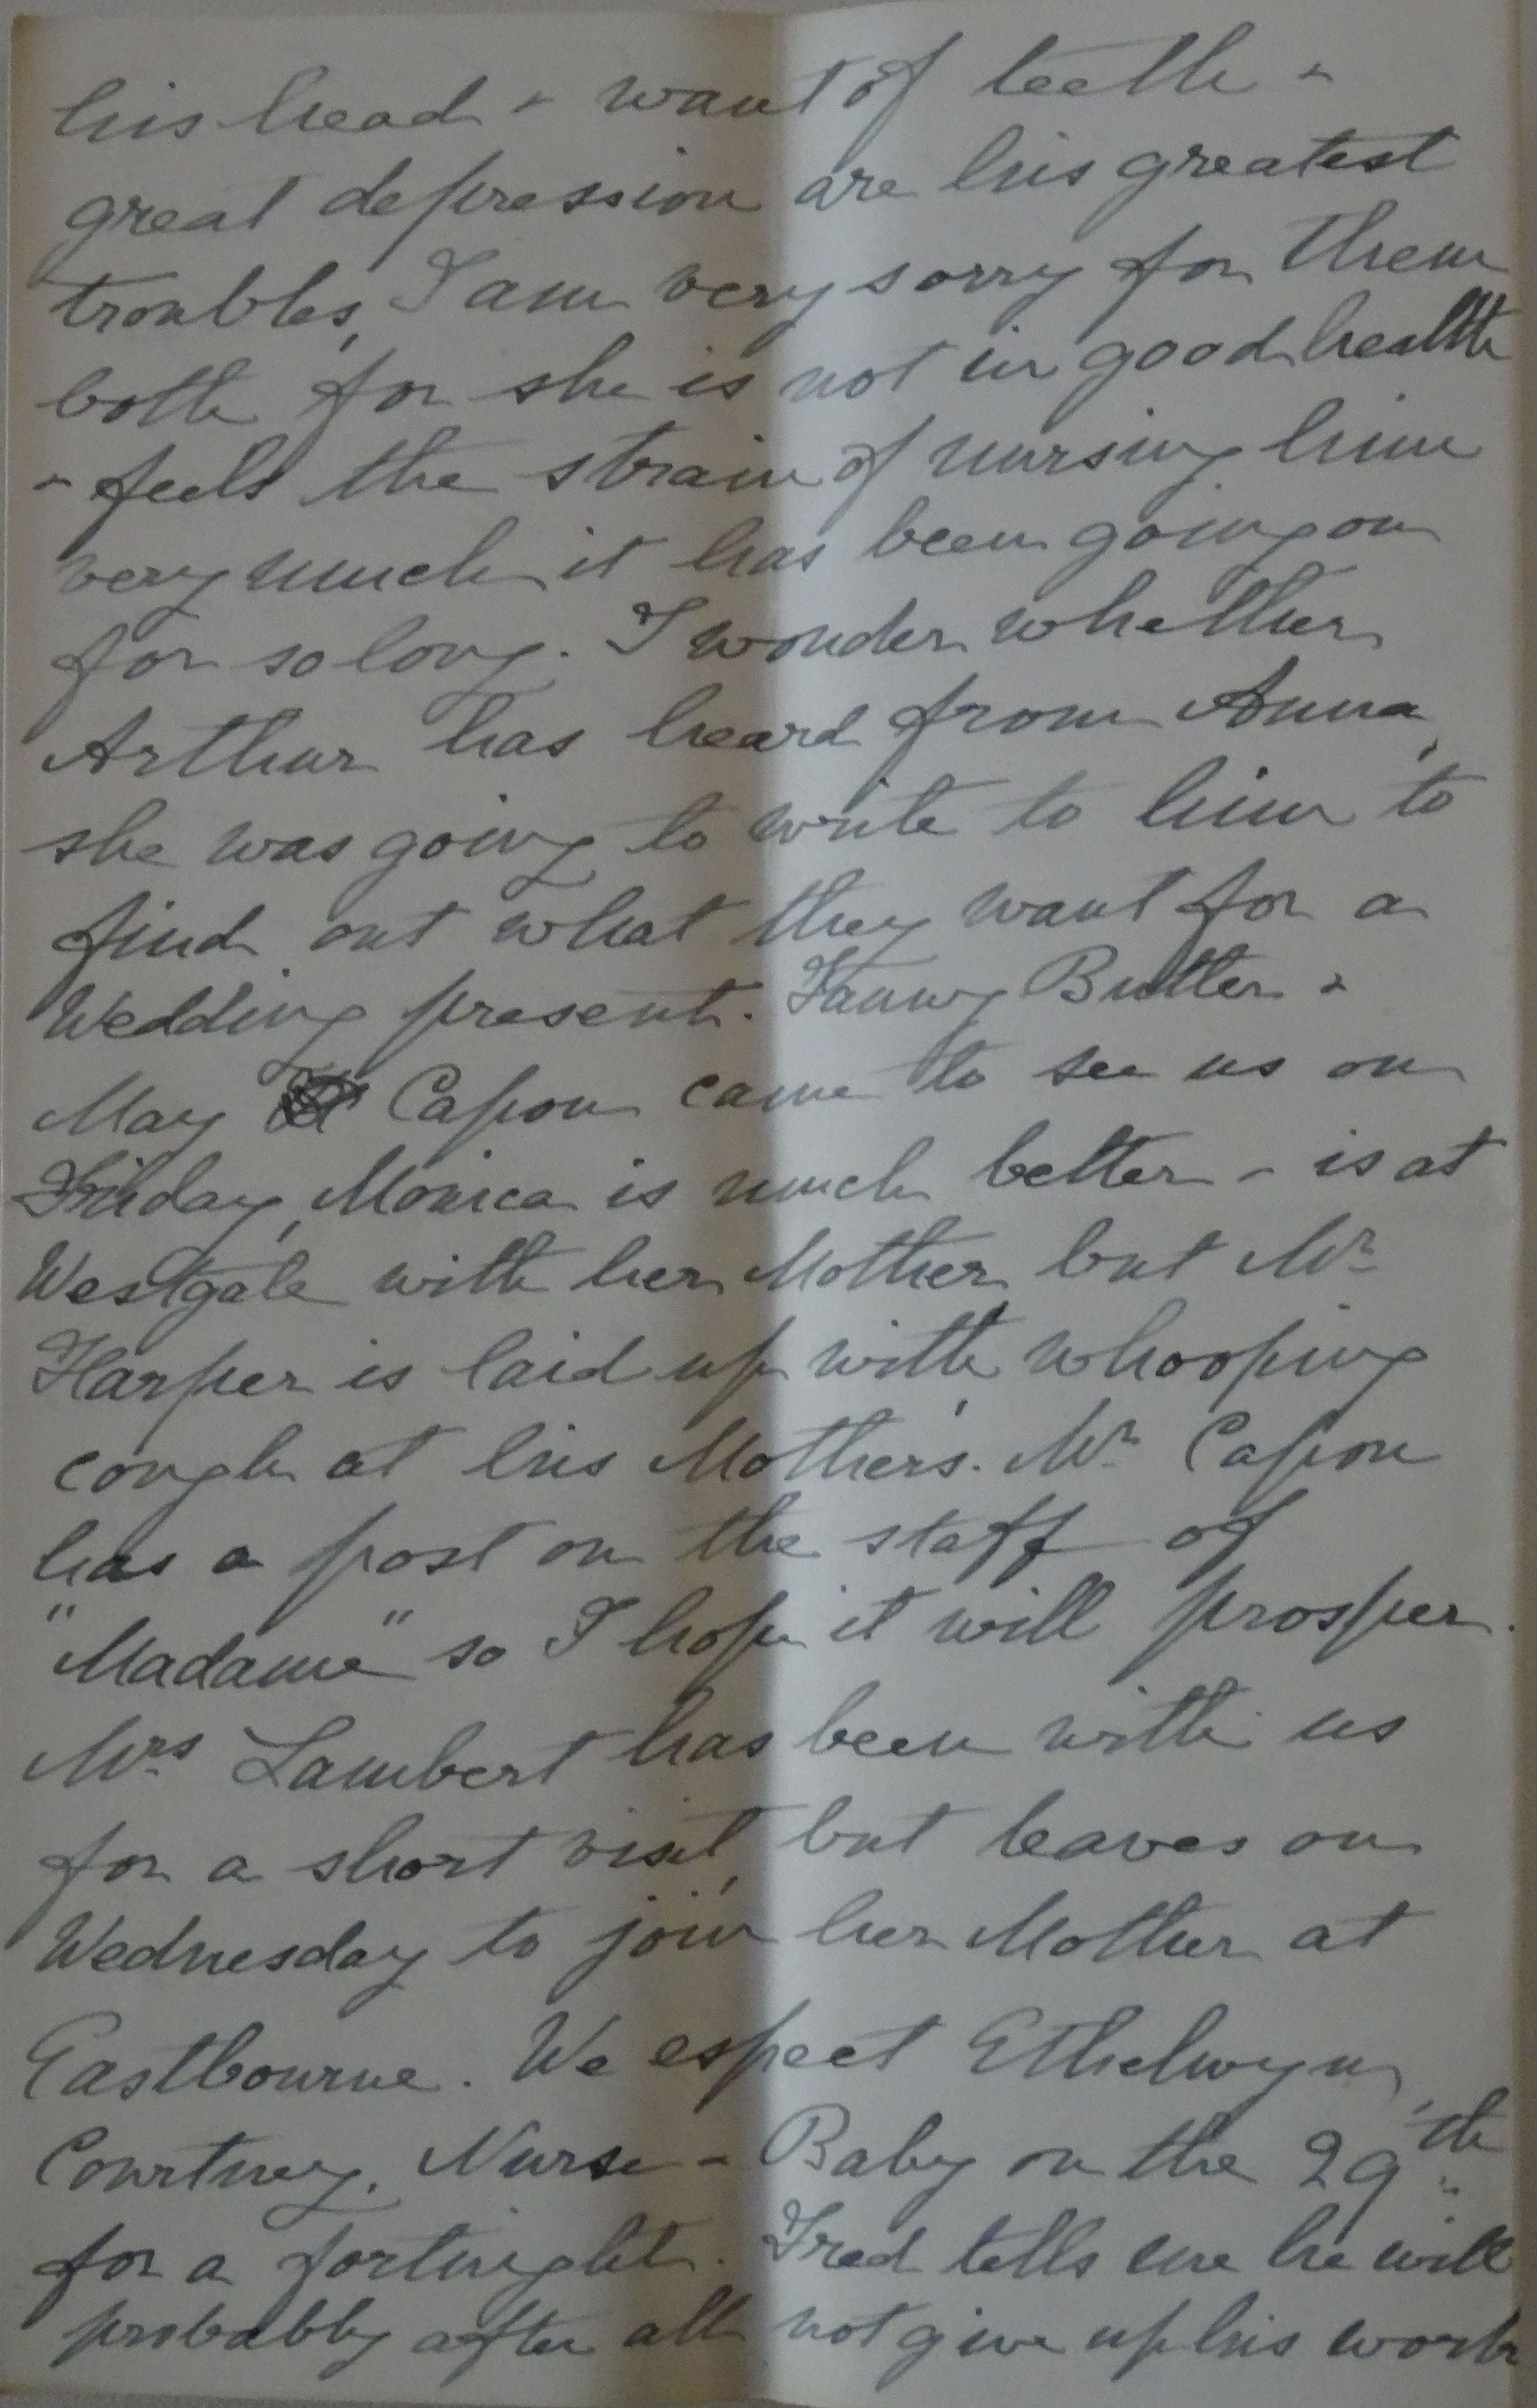 his head & want of teeth &
great depression are his greatest
troubles, I am very sorry for them
both for she is not in good health
& feels the strain of nursing him
very much it has been going on
for so long. I wonder whether
Arthur has heard from Anna,
she was going to write to him to
find out what they want for a
Wedding present. Fanny Butler &
May Capon came to see us on
Friday, Monica is much better & is at
Westgate with her Mother but Mr
Harper is laid up with whooping
cough at his Mothers. Mr Capon
has a post on the staff of
"Madame" so I hope it will prosper.
Mrs Lambert has been with us
for a short visit, but leaves on
Wednesday to join her Mother at
Eastbourne. We expect Ethelwyn,
Courtney, Nurse & Baby on the 29th
for a fortnight. Fred tells me he will
probably after all not give up his work